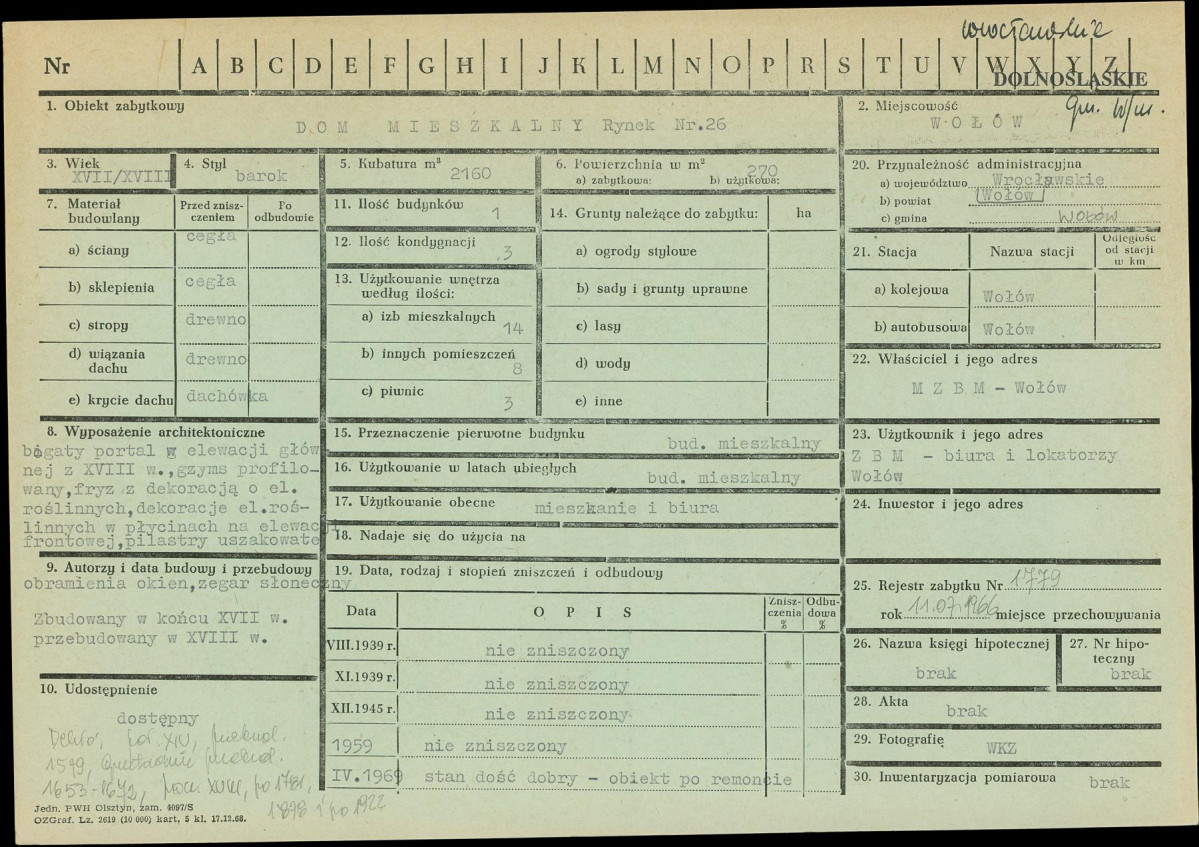 wrocławskie
Nr A B C D E F G H I J K L M N O P R S T U V W X Y Z
DOLNOŚLĄSKIE
1. Obiekt zabytkowy
DOM MIESZKALNY Rynek Nr.26
2. Miejscowość
WOŁÓW
gm. w/m.
3. Wiek
XVII/XVIII
4. Styl
barok
5. Kubatura m³
2160
6. Powierzchnia w m²
270
a) zabytkowa: b) użytkowa:
20. Przynależność administracyjna
a) województwo Wrocławskie
b) powiat Wołów
c) gmina WOŁÓW
7. Materiał budowlany
Przed zniszczeniem
Po odbudowie
a) ściany cegła
b) sklepienia cegła
c) stropy drewno
d) wiązania dachu drewno
e) krycie dachu dachówka
11. Ilość budynków 1
12. Ilość kondygnacji 3
13. Użytkowanie wnętrza według ilości:
a) izb mieszkalnych 14
b) innych pomieszczeń 8
c) piwnic 3
14. Grunty należące do zabytku: ha
a) ogrody stylowe
b) sady i grunty uprawne
c) lasy
d) wody
e) inne
21. Stacja
Nazwa stacji
Odległość od stacji w km
a) kolejowa Wołów
b) autobusowa Wołów
22. Właściciel i jego adres
M Z B M - Wołów
8. Wyposażenie architektoniczne
bogaty portal w elewacji głów
nej z XVIII w.,gzyms profilo-
wany,fryz z dekoracją o el.
roślinnych,dekoracje el.roś-
linnych w płycinach na elewacji
frontowej,pilastry uszakowate
15. Przeznaczenie pierwotne budynku bud. mieszkalny
16. Użytkowanie w latach ubiegłych bud. mieszkalny
17. Użytkowanie obecne mieszkanie i biura
18. Nadaje się do użycia na
23. Użytkownik i jego adres
Z B M - biura i lokatorzy
Wołów
24. Inwestor i jego adres
9. Autorzy i data budowy i przebudowy
obramienia okien,zegar słoneczny
Zbudowany w końcu XVII w.
przebudowany w XVIII w.
19. Data, rodzaj i stopień zniszczeń i odbudowy
Data OPIS Zniszczenia % Odbudowa %
VIII.1939 r. nie zniszczony
XI.1939 r. nie zniszczony
XII.1945 r. nie zniszczony
1959 nie zniszczony
IV.1969 stan dość dobry - obiekt po remoncie
25. Rejestr zabytku Nr 1779
rok 11.07.1966 miejsce przechowywania
26. Nazwa księgi hipotecznej
brak
27. Nr hipoteczny
brak
28. Akta
brak
29. Fotografię
WKZ
30. Inwentaryzacja pomiarowa brak
10. Udostępnienie
dostępny
poł. XIV, przebud.
1599, przebud.
1653-1672, pocz. XVIII, po 1781,
1898 i po 1922
Jedn. PWH Olsztyn, zam. 4097/S
OZGraf. Lz. 2619 (10 000) kart, 5 kl. 17.12.68.